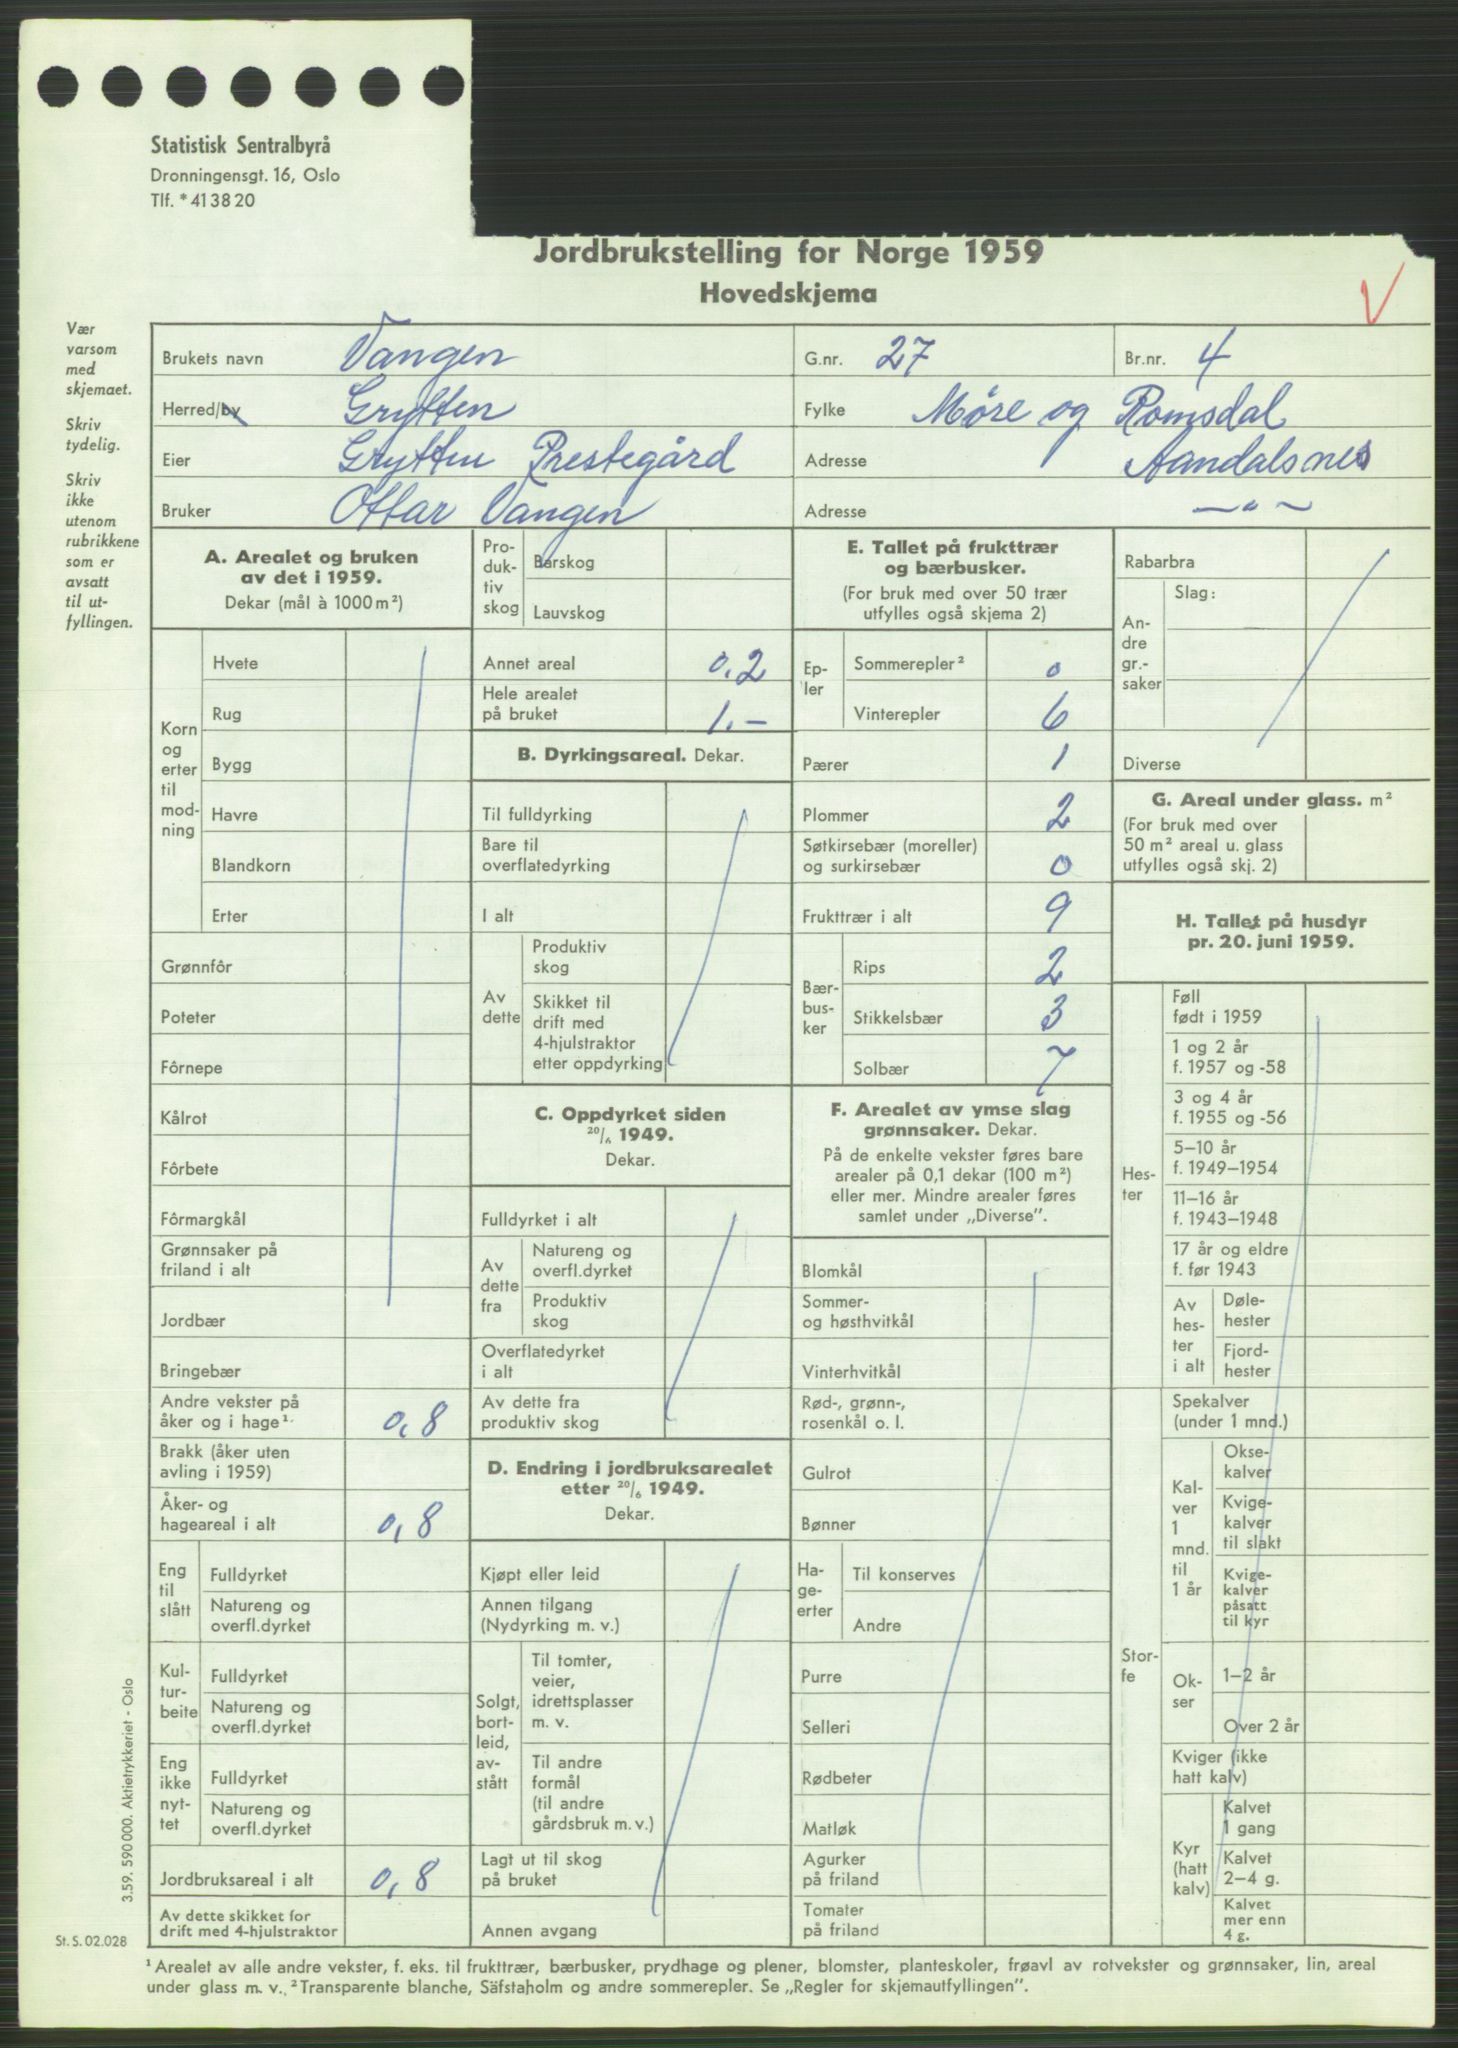 Statistisk Sentralbyrå
Dronningensgt. 16, Oslo
Tlf. *41 38 20
Jordbrukstelling for Norge 1959
Hovedskjema
V
Vær
varsom
med
skjemaet.
Skriv
tydelig.
Skriv
ikke
utenom
rubrikkene
som er
avsatt
til ut-
fyllingen.
Brukets navn Vangen G.nr. 27 Br.nr. 4
Herred/by Grytten Fylke Møre og Romsdal
Eier Grytten Prestegård Adresse Aandalsnes
Bruker Ottar Vangen Adresse —"—
A. Arealet og bruken
av det i 1959.
Dekar (mål à 1000 m²)
Korn
og
erter
til
mod-
ning
Hvete
Rug
Bygg
Havre
Blandkorn
Erter
Grønnfôr
Poteter
Fôrnepe
Kålrot
Fôrbete
Fôrmargkål
Grønnsaker på
friland i alt
Jordbær
Bringebær
Andre vekster på
åker og i hage¹· 0,8
Brakk (åker uten
avling i 1959)
Åker- og
hageareal i alt 0,8
Eng
til
slått
Fulldyrket
Natureng og
overfl.dyrket
Kul-
tur-
beite
Fulldyrket
Natureng og
overfl.dyrket
Eng
ikke
nyt-
tet
Fulldyrket
Natureng og
overfl.dyrket
Jordbruksareal i alt 0,8
Av dette skikket for
drift med 4-hjulstraktor
Pro-
duk-
tiv
skog
Barskog
Lauvskog
Annet areal 0,2
Hele arealet
på bruket 1.–
B. Dyrkingsareal. Dekar.
Til fulldyrking
Bare til
overflatedyrking
I alt
Av
dette
Produktiv
skog
Skikket til
drift med
4-hjulstraktor
etter oppdyrking
C. Oppdyrket siden
20/6 1949.
Dekar.
Fulldyrket i alt
Av
dette
fra
Natureng og
overfl.dyrket
Produktiv
skog
Overflatedyrket
i alt
Av dette fra
produktiv skog
D. Endring i jordbruksarealet
etter 20/6 1949.
Dekar.
Kjøpt eller leid
Annen tilgang
(Nydyrking m. v.)
Solgt,
bort-
leid,
av-
stått
Til tomter,
veier,
idrettsplasser
m. v.
Til andre
formål
(til andre
gårdsbruk m. v.)
Lagt ut til skog
på bruket
Annen avgang
E. Tallet på frukttrær
og bærbusker.
(For bruk med over 50 trær
utfylles også skjema 2)
Ep-
ler
Sommerepler² 0
Vinterepler 6
Pærer 1
Plommer 2
Søtkirsebær (moreller)
og surkirsebær 0
Frukttrær i alt 9
Bær-
bus-
ker
Rips 2
Stikkelsbær 3
Solbær 7
F. Arealet av ymse slag
grønnsaker. Dekar.
På de enkelte vekster føres bare
arealer på 0,1 dekar (100 m²)
eller mer. Mindre arealer føres
samlet under „Diverse”.
Blomkål
Sommer-
og høsthvitkål
Vinterhvitkål
Rød-, grønn-,
rosenkål o. l.
Gulrot
Bønner
Ha-
ge-
erter
Til konserves
Andre
Purre
Selleri
Rødbeter
Matløk
Agurker
på friland
Tomater
på friland
Rabarbra
An-
dre
gr.-
saker
Slag:
Diverse
G. Areal under glass. m²
(For bruk med over
50 m² areal u. glass
utfylles også skj. 2)
H. Tallet på husdyr
pr. 20. juni 1959.
Hes-
ter
Føll
født i 1959
1 og 2 år
f. 1957 og -58
3 og 4 år
f. 1955 og -56
5–10 år
f. 1949–1954
11–16 år
f. 1943–1948
17 år og eldre
f. før 1943
Av
hes-
ter
i alt
Døle-
hester
Fjord-
hester
Stor-
fe
Spekalver
(under 1 mnd.)
Kal-
ver
1
mnd.
til
1 år
Okse-
kalver
Kvige-
kalver
til slakt
Kvige-
kalver
påsatt
til kyr
Ok-
ser
1–2 år
Over 2 år
Kviger (ikke
hatt kalv)
Kyr
(hatt
kalv)
Kalvet
1 gang
Kalvet
2–4 g.
Kalvet
mer enn
4 g.
3.59. 590 000. Aktietrykkeriet - Oslo
St. S. 02.028
¹ Arealet av alle andre vekster, f. eks. til frukttrær, bærbusker, prydhage og plener, blomster, planteskoler, frøavl av rotvekster og grønnsaker, lin, areal
under glass m. v. ² Transparente blanche, Säfstaholm og andre sommerepler. Se „Regler for skjemautfyllingen”.